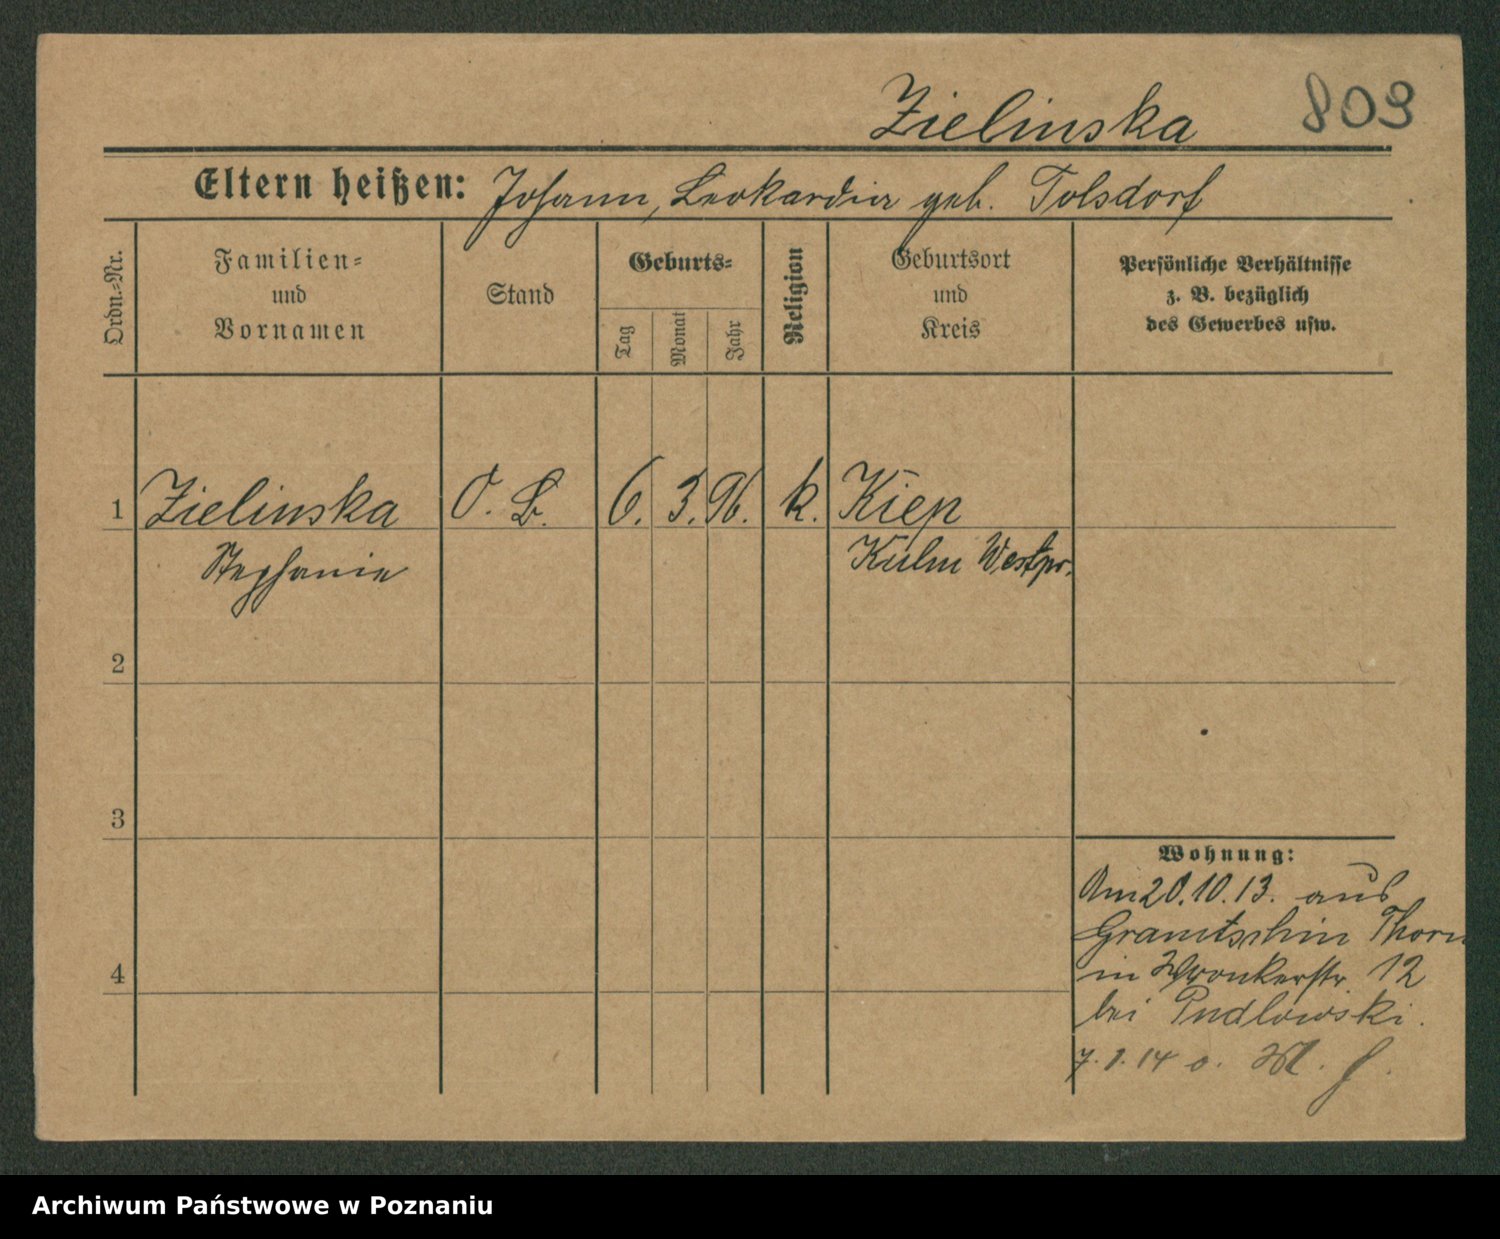 Zielinska 803
Eltern heißen: Johann, Leokardia geb. Tolsdorf
Ordn.-Nr.
Familien-
und
Vornamen
Stand
Geburts-
Tag
Monat
Jahr
Religion
Geburtsort
und
Kreis
Persönliche Verhältnisse
z. B. bezüglich
des Gewerbes usw.
1 Zielinska O. B. 6. 3. 96. k. Kiep
Stephanie Kulm Westpr.
2
3
4
Wohnung:
Am 20.10.13. aus
Gramtschin Thorn
in Wronkerstr. 12
bei Pudlowski.
14 o.
Archiwum Państwowe w Poznaniu